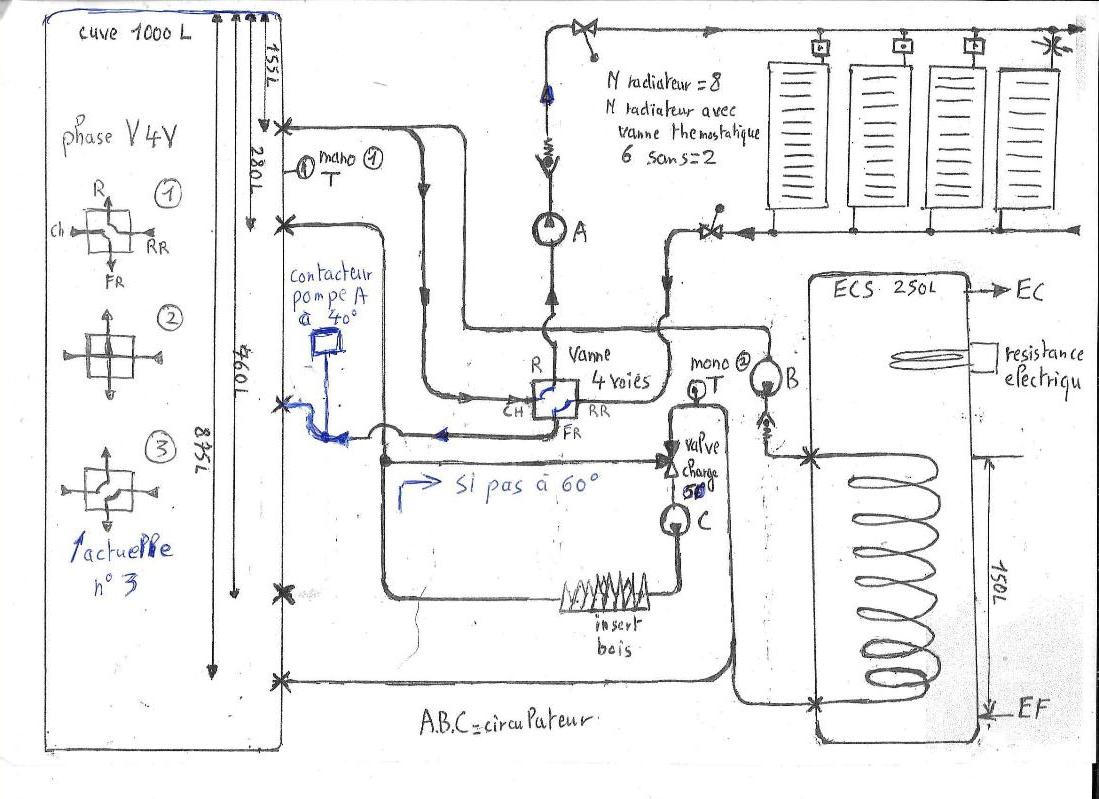 cuve 1000 L
155L
phase V4V
280L
mano ①
T
①
R
Ch
RR
FR
②
460L
③
875L
↑actuelle
n° 3
contacteur
pompe A
à 40°
A
N radiateur = 8
N radiateur avec
vanne themostatique
6 sans=2
R
Vanne
4 voies
CH
RR
FR
mono ②
T
B
valve
charge
C
Si pas à 60°
insert
bois
ECS 250L
EC
resistance
electriqu
150L
EF
A.B.C=circulateur